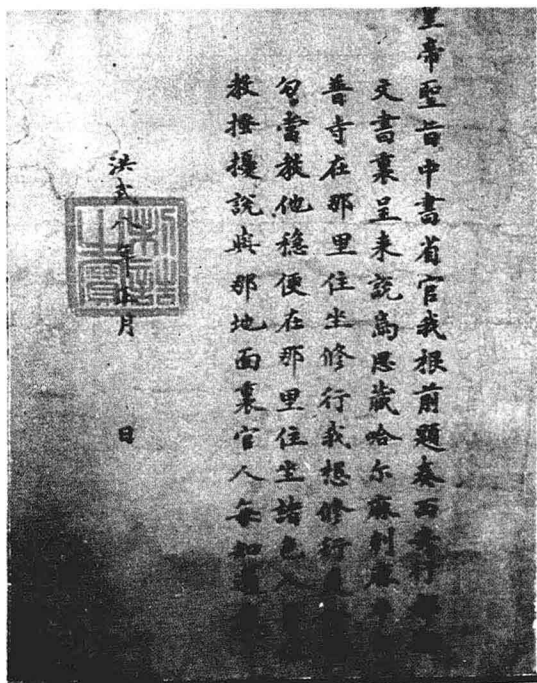 皇帝聖旨中書省官我根前題奏西安行
文書裏呈来說烏思藏哈尔麻剌麻
普寺在那里住坐修行我想修行是
勾當教他穩便在那里住坐諸色人
教搔擾說與那地面裏官人每知道
洪武八年正月 日
制誥之寶